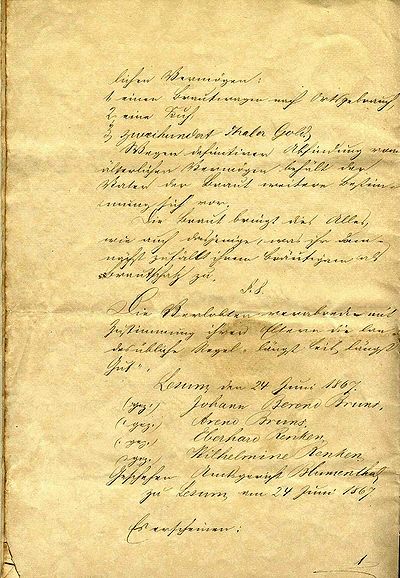 lichen Vermögen:
1, einen Brautwagen nach Ortsgebrauch,
2, eine Kuh,
3, zweihundert Thaler Gold,
Wegen definitiver Abfindung vom
älterlichen Vermögen behält der
Vater der Braut weitere Bestim-
mung sich vor.
Die Braut bringt dies Alles,
wie auch dasjenige, was ihr dem-
nächst zufällt ihrem Bräutigam als
Brautschatz zu.
§ 3.
Die Verlobten verabreden mit
Zustimmung ihrer Eltern die lan-
desübliche Regel "längst Leib, längst
Gut".
Lesum, den 24 Juni 1867.
(gez.) Johann Berend Bruns,
(gez.) Arend Bruns,
(gez.) Eberhard Renken,
(gez.) Wilhelmine Renken,
Geschehen Amtsgericht Blumenthal,
zu Lesum, am 24 Juni 1867
Es erscheinen:
1